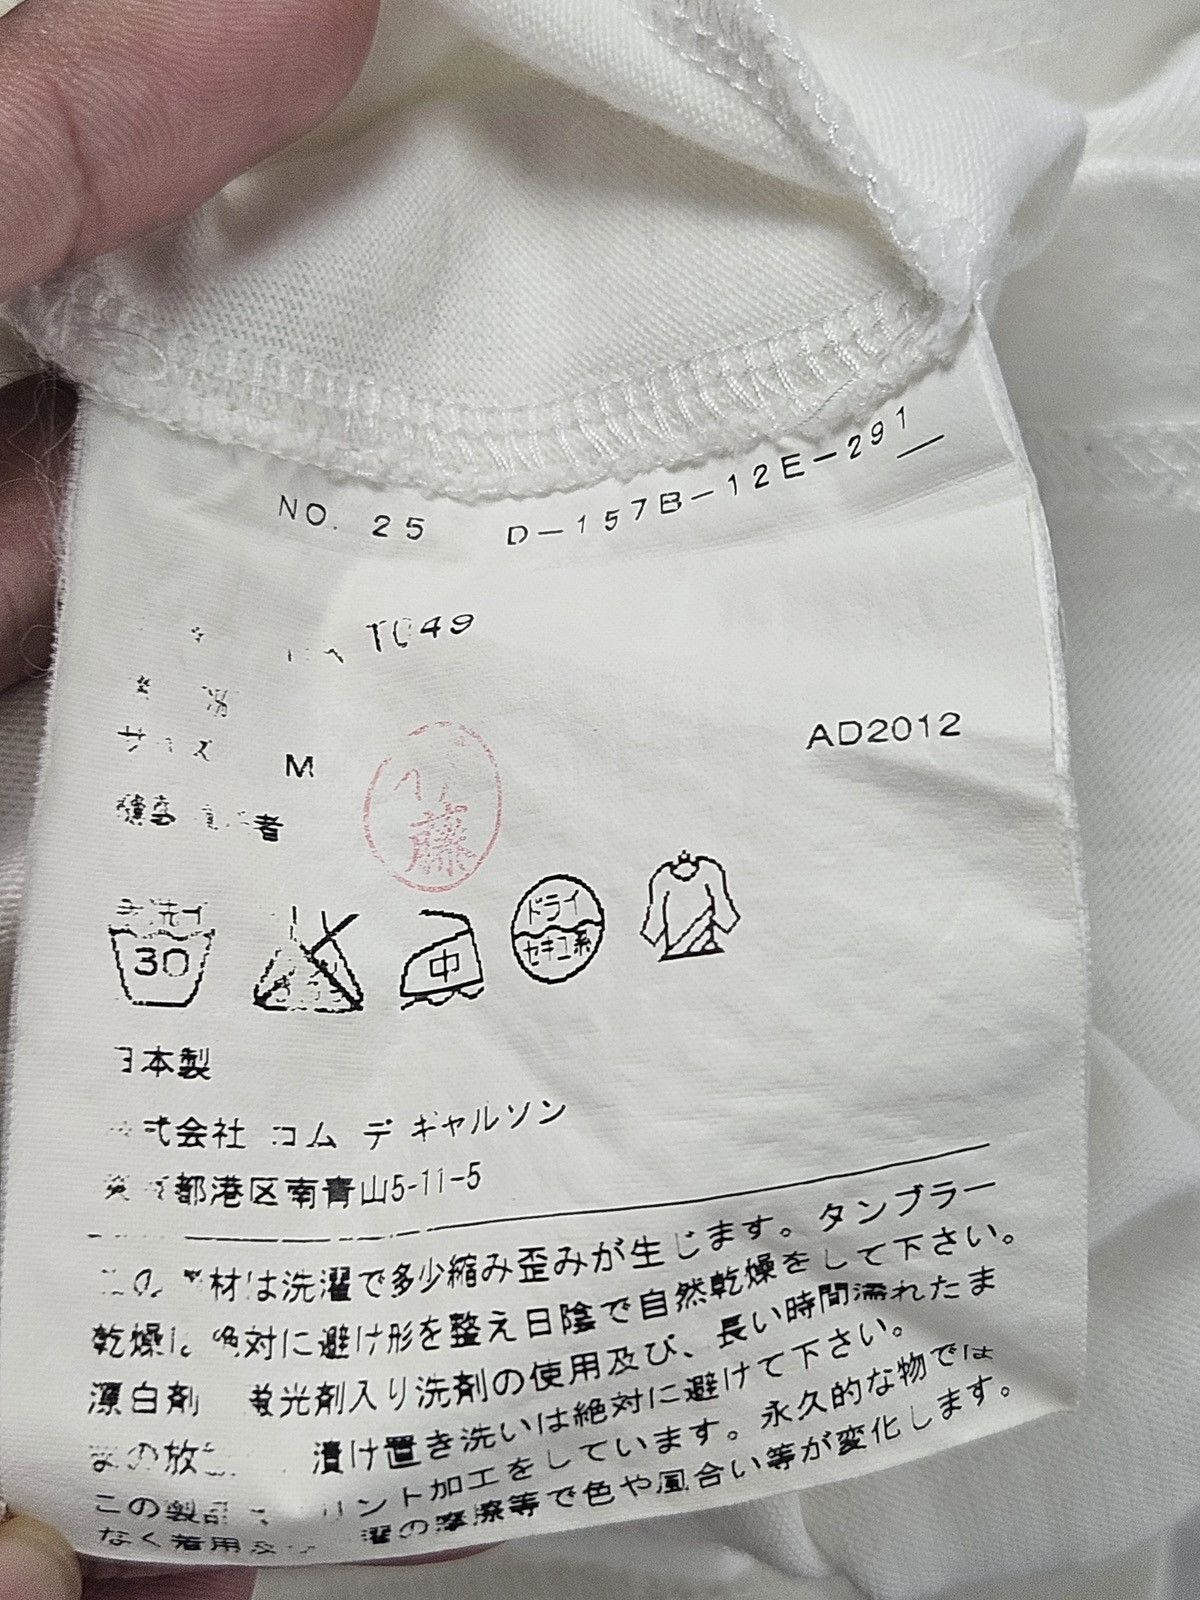 NO. 25 D-157B-12E-291
T049
サイズ M
AD2012
者
藤
手洗イ
30
中
ドライ
セキユ系
日本製
式会社 コム デ ギャルソン
都港区南青山5-11-5
素材は洗濯で多少縮み歪みが生じます。タンブラー
乾燥は絶対に避け形を整え日陰で自然乾燥をして下さい。
漂白剤 蛍光剤入り洗剤の使用及び、長い時間濡れたま
まの放 漬け置き洗いは絶対に避けて下さい。
この製品 プリント加工をしています。永久的な物では
なく着用及び 濯の摩擦等で色や風合い等が変化します。